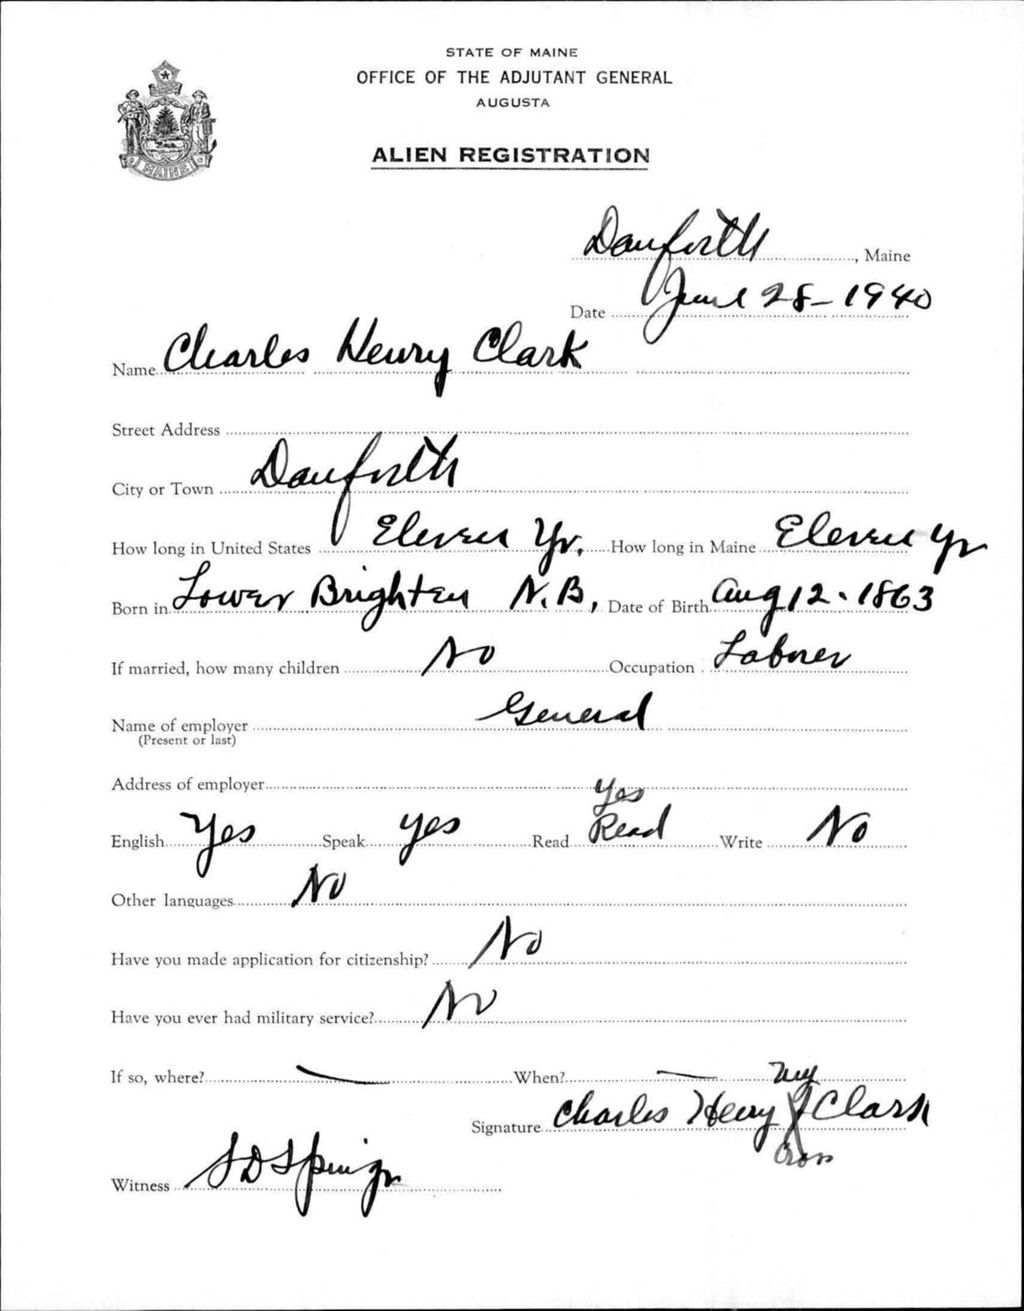 STATE OF MAINE
OFFICE OF THE ADJUTANT GENERAL
AUGUSTA
ALIEN REGISTRATION
MAINE
Danforth, Maine
Date June 28-1940
Name Charles Henry Clark
Street Address
City or Town Danforth
How long in United States Eleven Yr. How long in Maine Eleven Yr
Born in Lower Brighten N.B, Date of Birth Aug 12.1863
If married, how many children No Occupation Laborer
Name of employer General
(Present or last)
Address of employer
Yes
English Yes Speak yes Read Read Write No
Other languages No
Have you made application for citizenship? No
Have you ever had military service? No
If so, where? — When? —
my
Signature Charles Henry X Clark
Cross
Witness